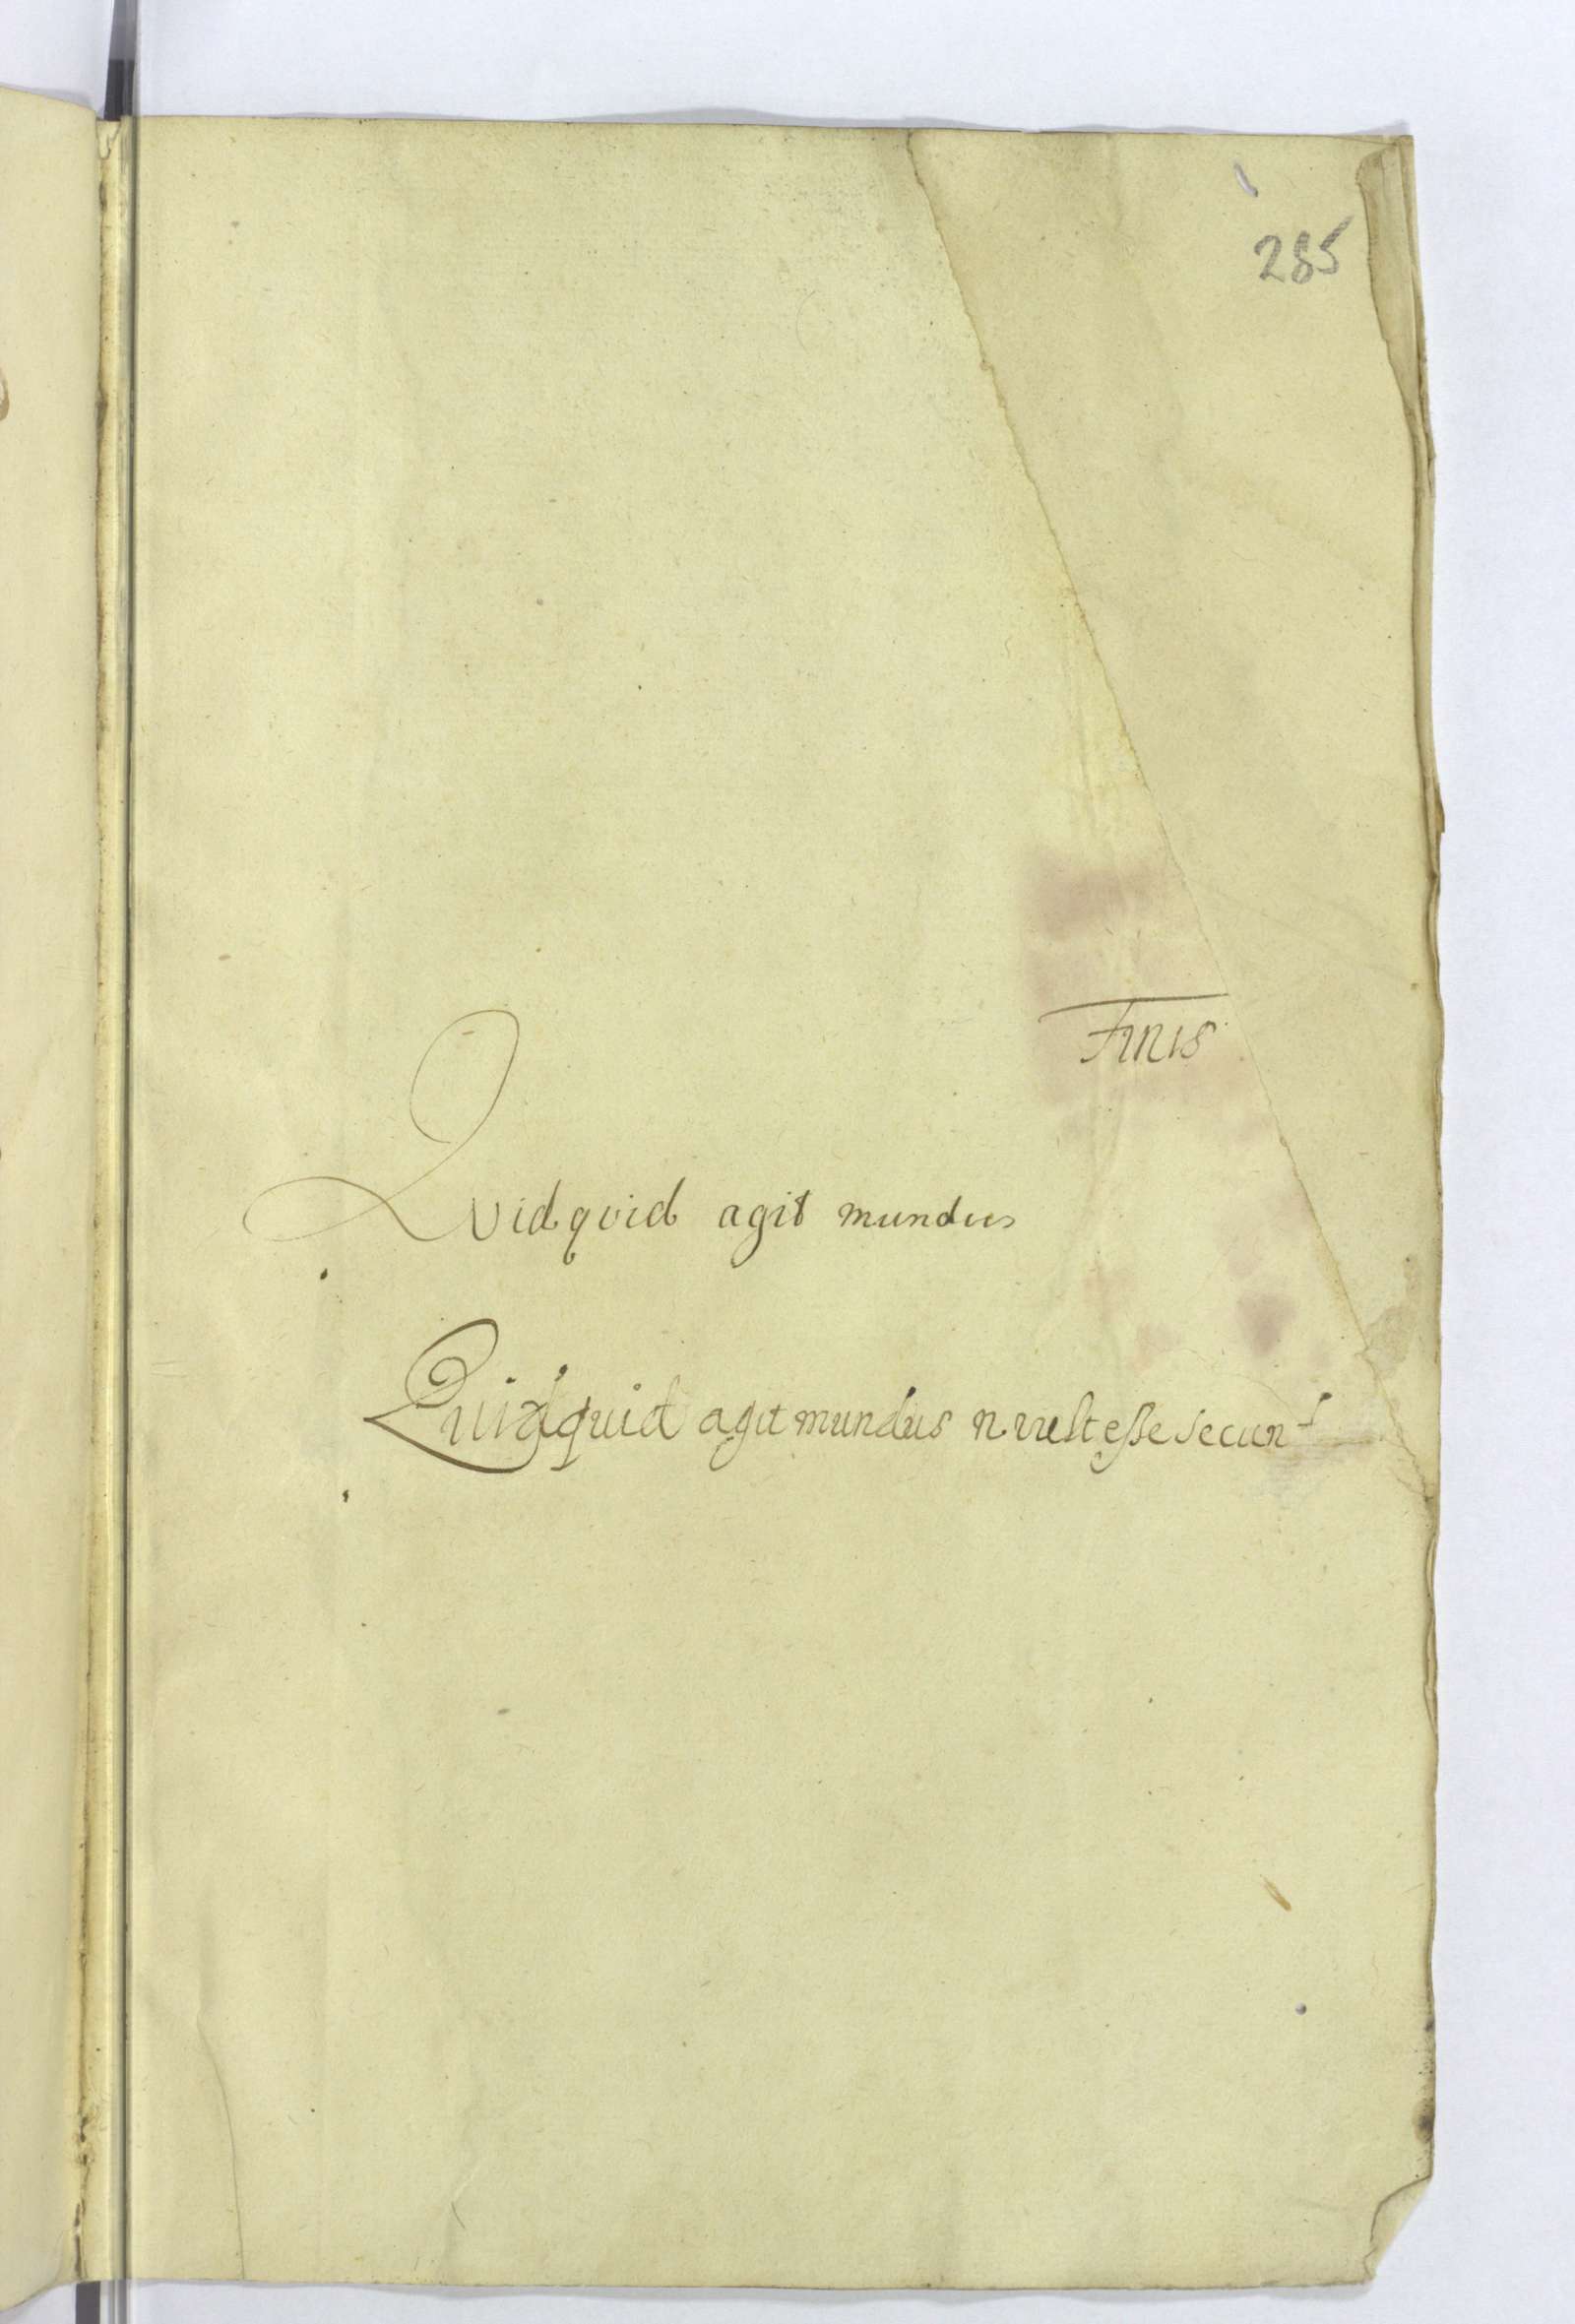 285
Finis
Quidquid agit mundus
Quidquid agit mundus n vult esse secun